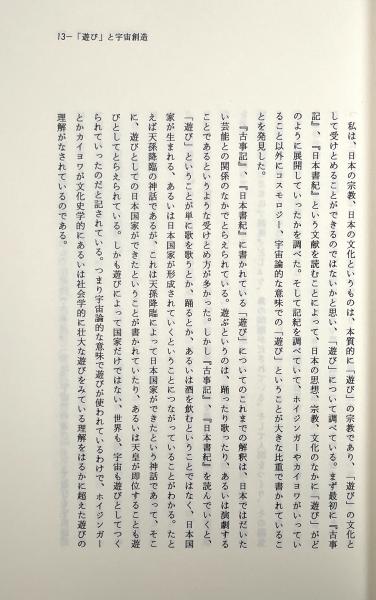 13―「遊び」と宇宙創造
私は、日本の宗教、日本の文化というものは、本質的に「遊び」の宗教であり、「遊び」の文化と
して受けとめることができるのではないかと思い、「遊び」について調べている。まず最初に『古事
記』、『日本書紀』という文献を読むことによって、日本の思想、宗教、文化のなかに「遊び」がど
のように展開していったかを調べた。そして記紀を調べていて、ホイジンガーやカイヨワがいってい
ること以外にコスモロジー、宇宙論的な意味での「遊び」ということが大きな比重で書かれているこ
とを発見した。
『古事記』、『日本書紀』に書かれている「遊び」についてのこれまでの解釈は、日本ではだいた
い芸能との関係のなかでとらえられている。遊ぶというのは、踊ったり歌ったり、あるいは演劇する
ことであるというような受けとめ方が多かった。しかし『古事記』、『日本書紀』を読んでいくと、
「遊び」ということが単に歌を歌うとか、踊るとか、あるいは酒を飲むということではなく、日本国
家が生まれる、あるいは日本国家が形成されていくということにつながっていることがわかる。たと
えば天孫降臨の神話であるが、これは天孫降臨によって日本国家ができたという神話であって、そこ
に、遊びとしての日本国家ができたということが書かれていたり、あるいは天皇が即位することも遊
びとしてとらえられている。しかも遊びによって国家だけではない、世界も、宇宙も遊びとしてつく
られていったのだと記されている。つまり宇宙論的な意味で遊びが使われているわけで、ホイジンガー
とかカイヨワが文化史学的にあるいは社会学的に壮大な遊びをみている理解をはるかに超えた遊びの
理解がなされているのである。